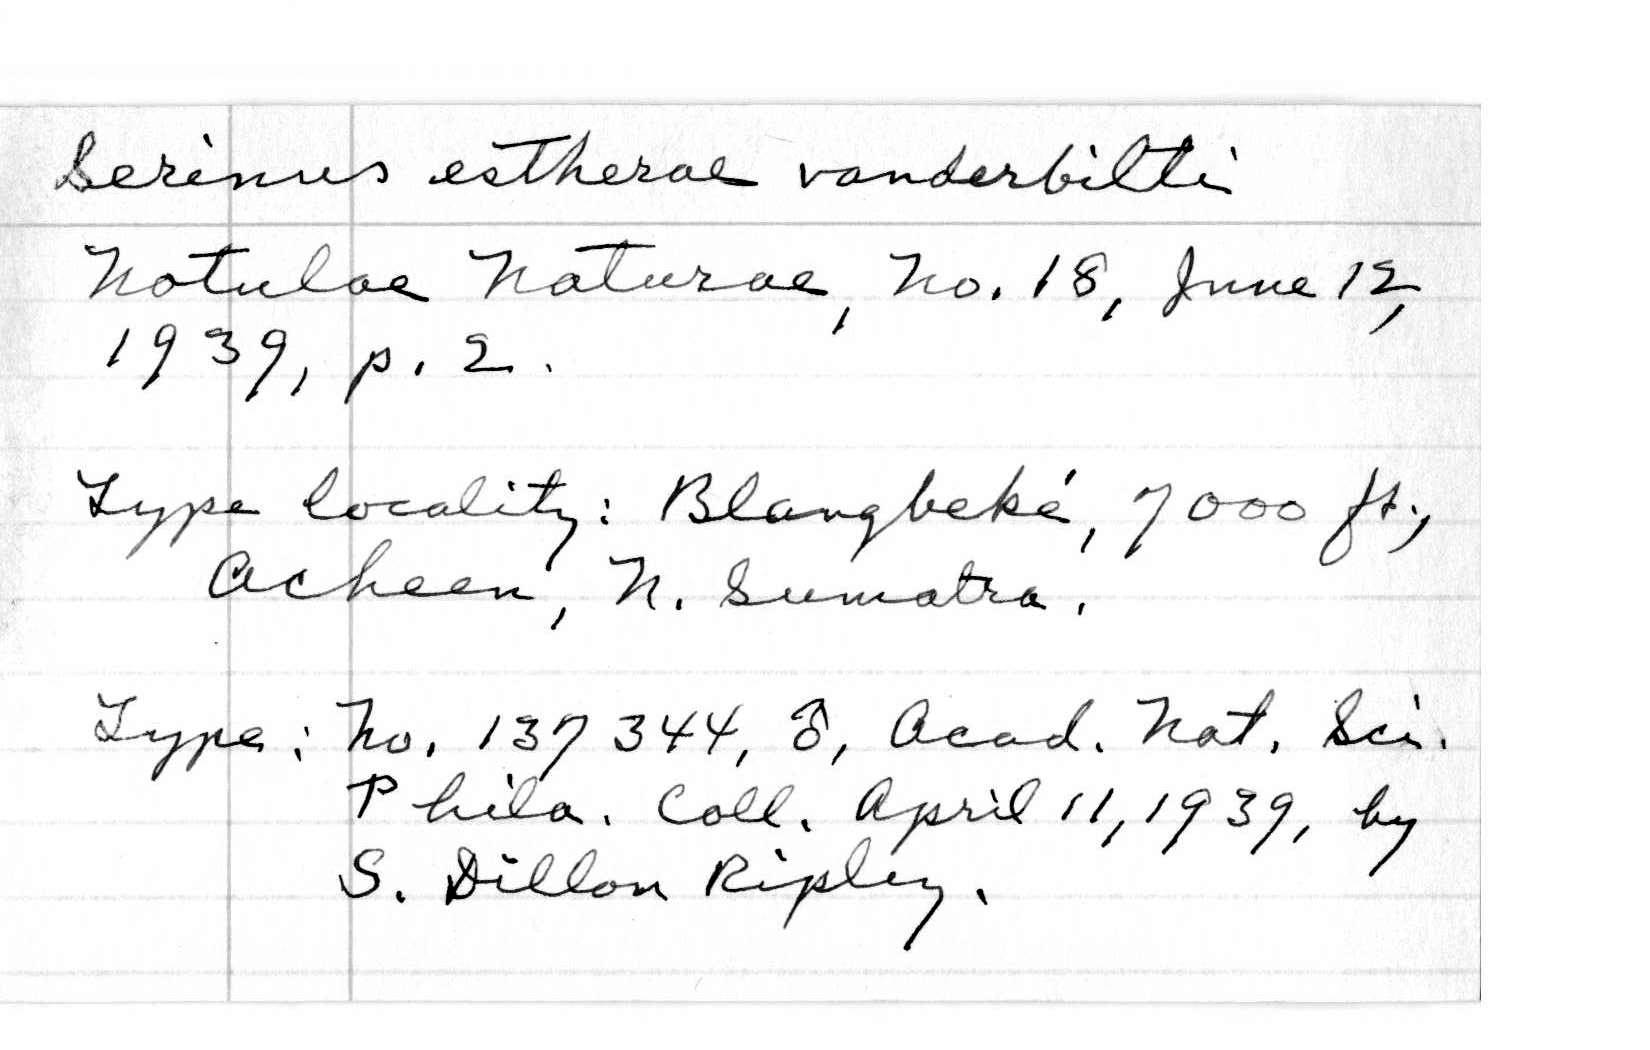 Serinus estherae vanderbilti
Notulae Naturae, No. 18, June 12,
1939, p. 2.
Type locality: Blangbeké, 7000 ft.,
Acheen, N. Sumatra.
Type: No. 137344, ♂, Acad. Nat. Sci.
Phila. Coll. April 11, 1939, by
S. Dillon Ripley.